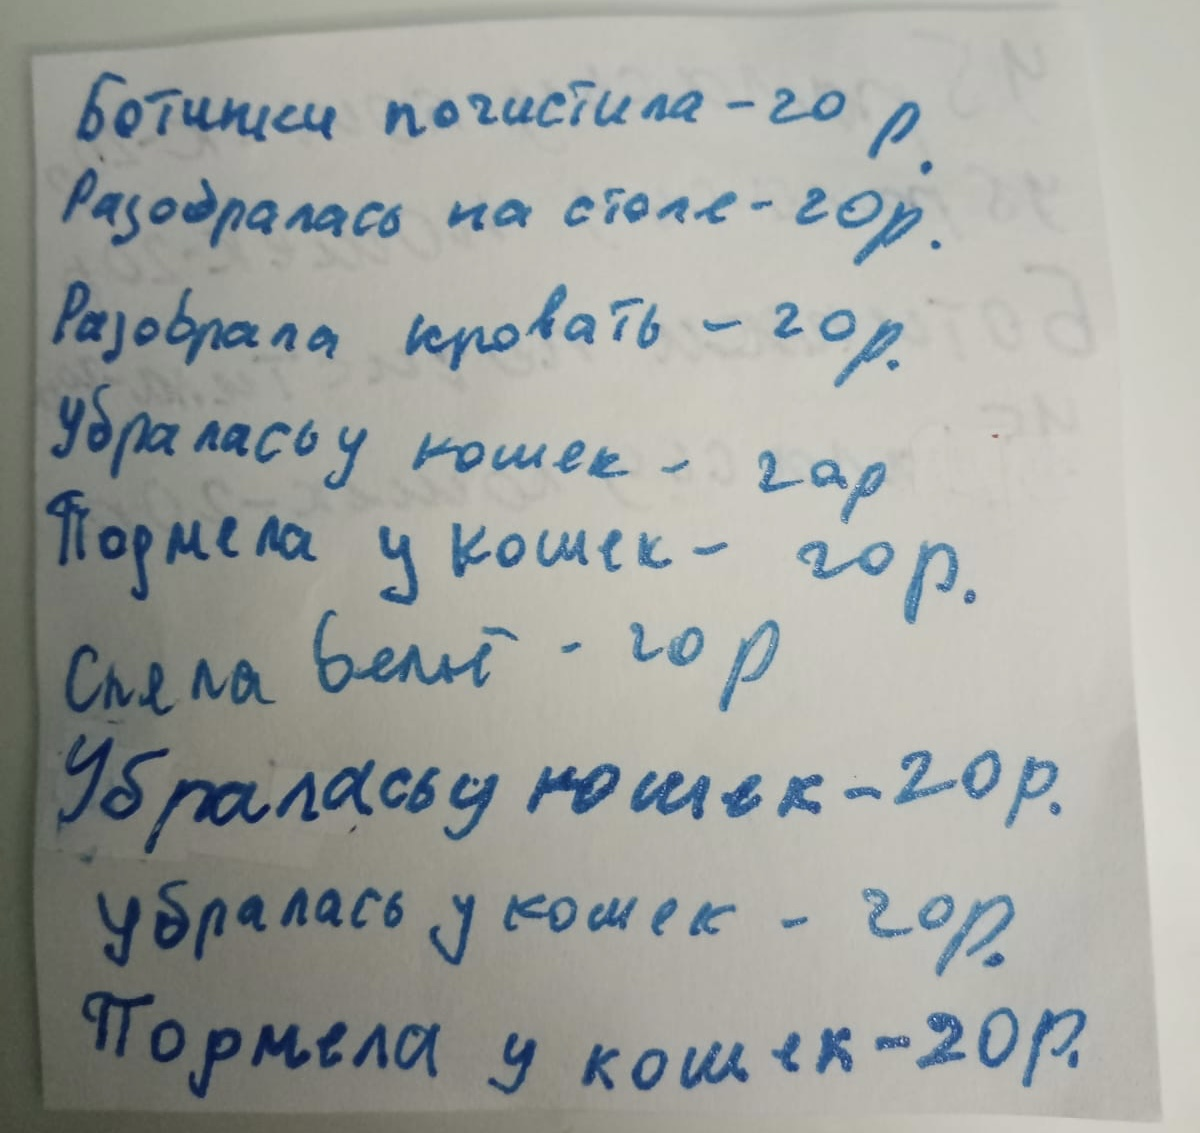 Ботинки почистила - 20 р.
Разобралась на столе - 20р.
Разобрала кровать - 20р.
Убралась у кошек - 20р
Подмела у кошек - 20р.
Сняла бельё - 20р
Убралась у кошек - 20р.
Убралась у кошек - 20р.
Подмела у кошек - 20р.